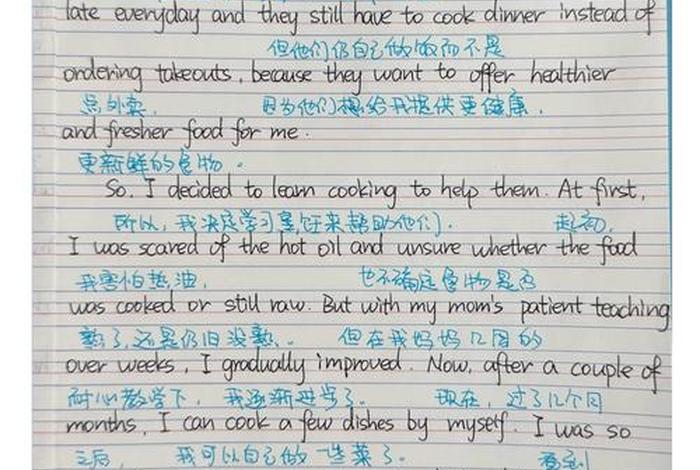 late everyday and they still have to cook dinner instead of
但他们仍自己做饭而不是
ordering takeouts, because they want to offer healthier
点外卖, 因为他们想给我提供更健康,
and fresher food for me.
更新鲜的食物。
So, I decided to learn cooking to help them. At first,
所以,我决定学习烹饪来帮助他们. 起初,
I was scared of the hot oil and unsure whether the food
我害怕热油, 也不确定食物是否
was cooked or still raw. But with my mom's patient teaching
熟了,还是仍旧没熟. 但在我妈妈几周的
over weeks, I gradually improved. Now, after a couple of
耐心教学下, 我逐渐进步了. 现在, 过了几个月
months, I can cook a few dishes by myself. I was so
之后, 我可以自己做一些菜了. 看到